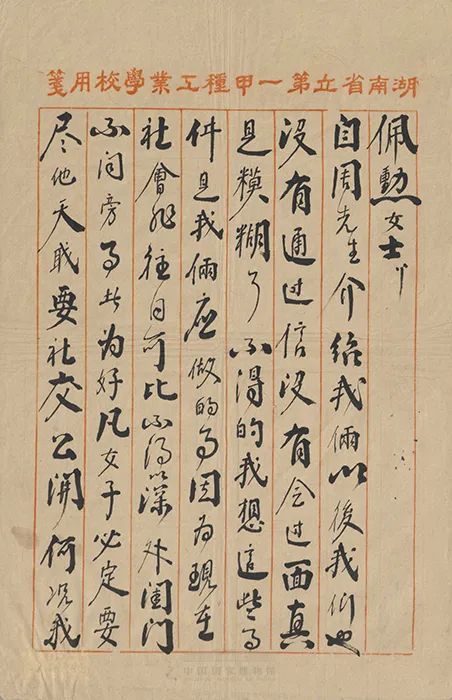 湖南省立第一甲種工業學校用箋
佩勳女士丫
自周先生介绍我倆以後我们也
没有通过信没有会过面真
是糢糊了不得的我想這些事
件是我倆应做的事因为現在
社會非往日可比不得以深处闺門
不问旁事此为好凡女子必定要
尽他天职要社交公開何况我
中国国家博物馆